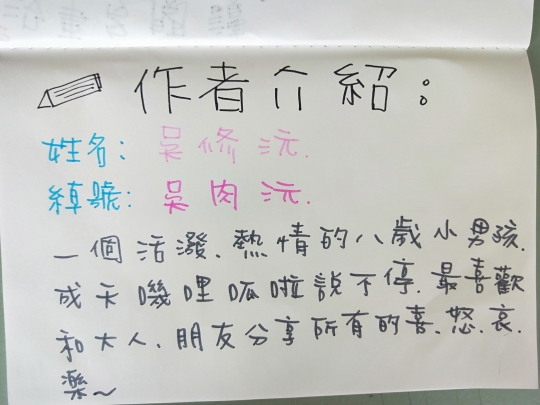 作者介紹:
姓名: 吳修沅.
綽號: 吳肉沅.
一個活潑.熱情的八歲小男孩.
成天嘰哩呱啦說不停.最喜歡
和大人.朋友分享所有的喜.怒.哀.
樂~